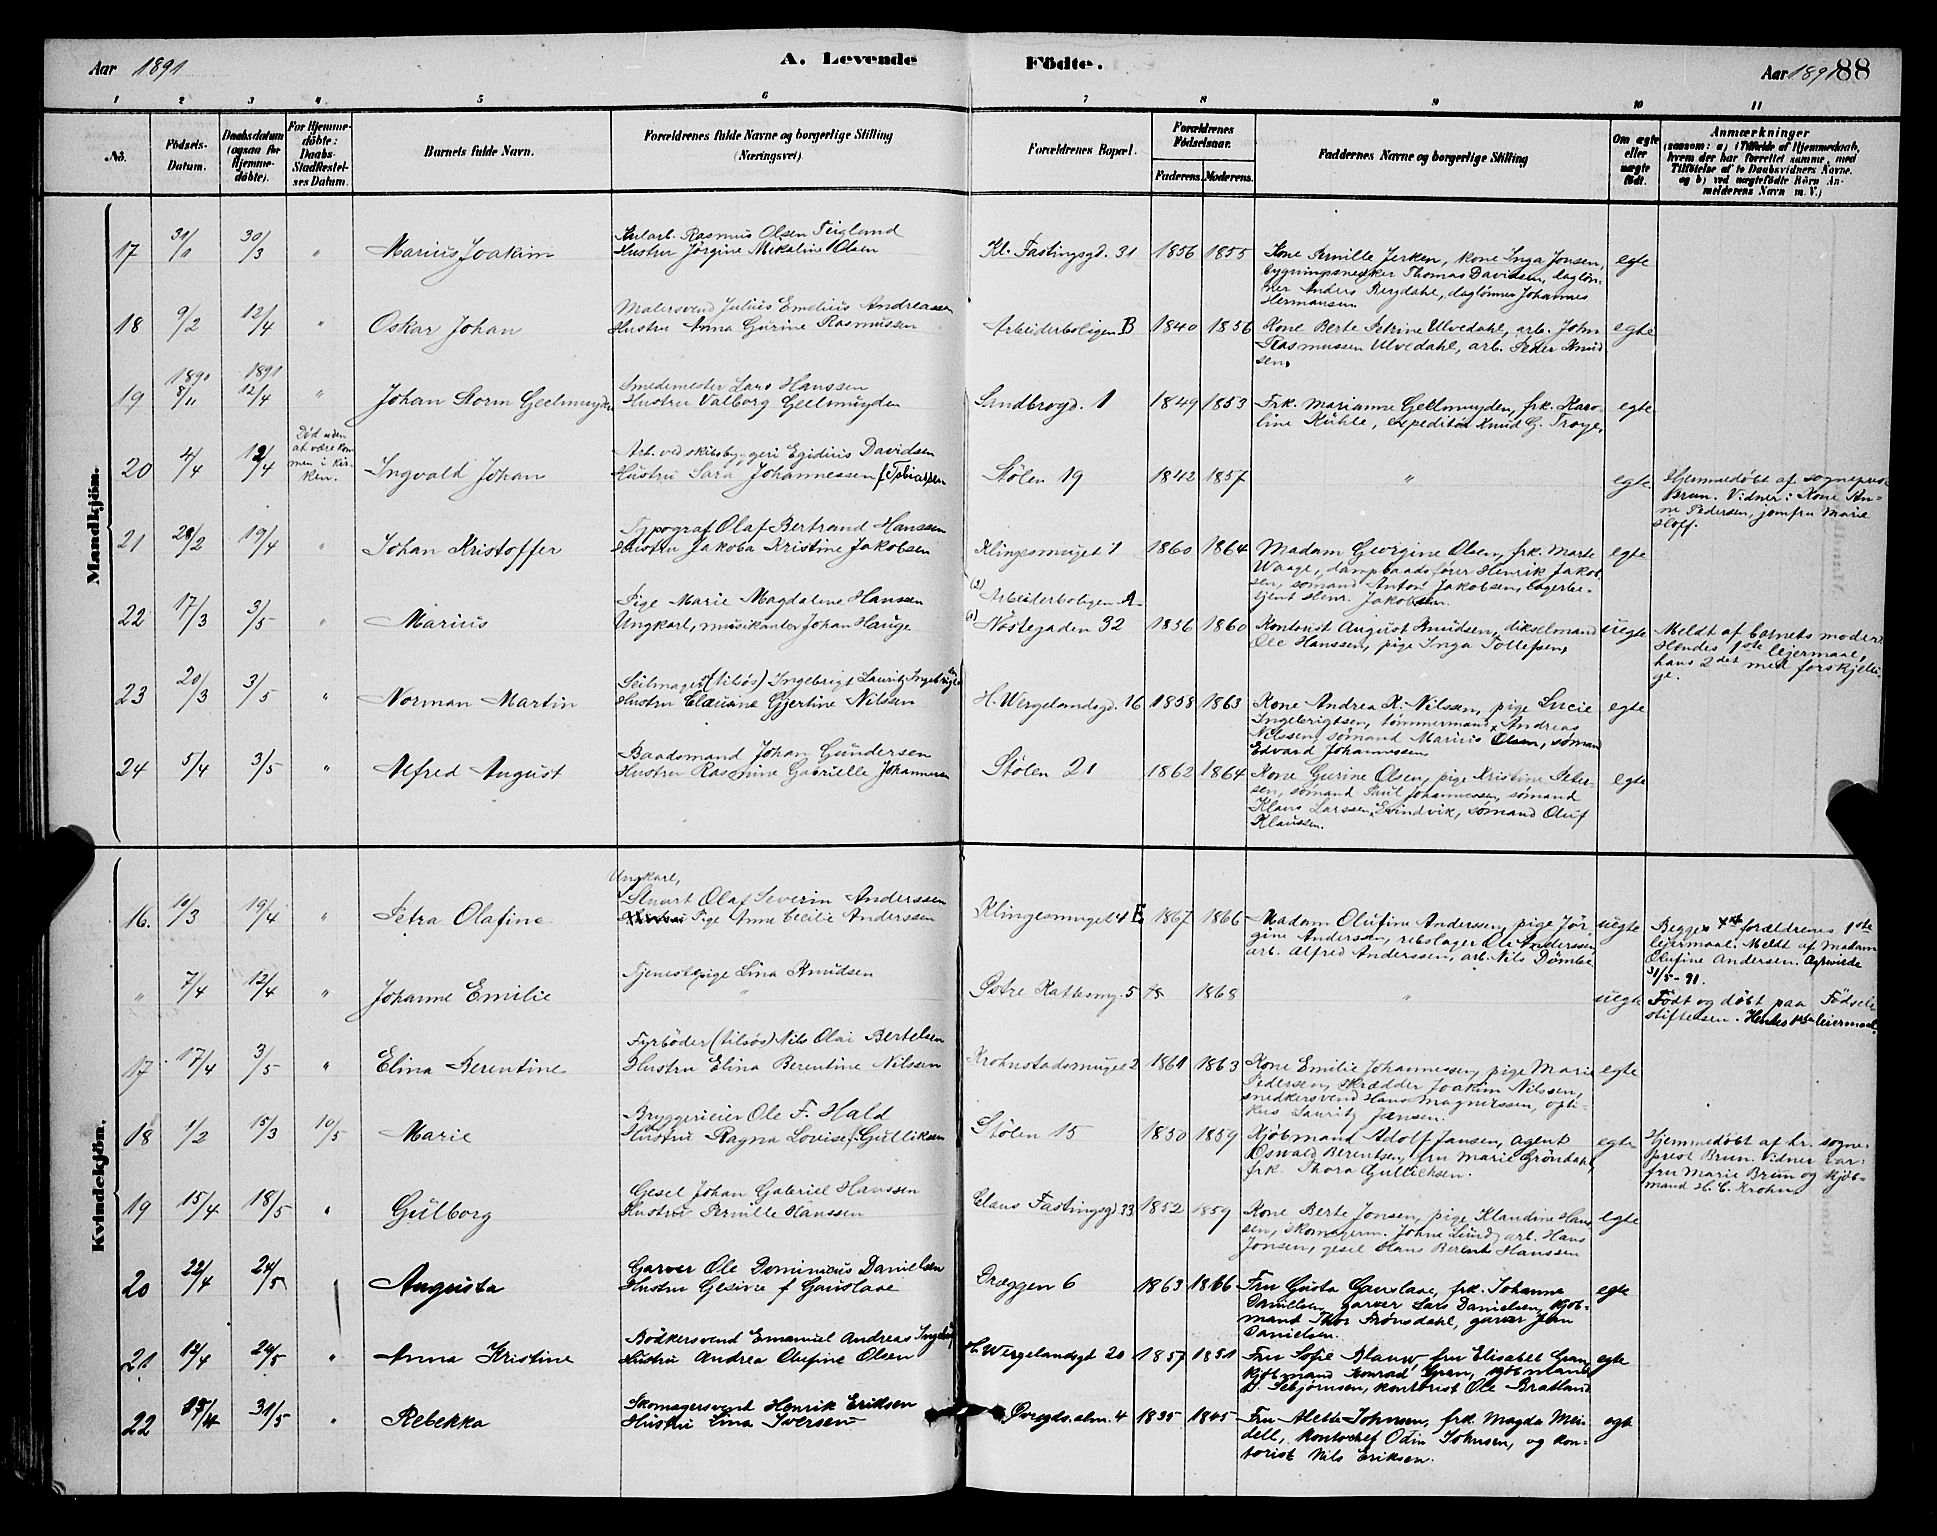 Aar 1891
A. Levende Födte.
Aar 1891 88
1 2 3 4 5 6 7 8 9 10 11
No.
Födsels-Datum.
Daabsdatum (ogsaa for Hjemme-döbte).
For Hjemme-döbte: Daabs-Stadfæstelses Datum.
Barnets fulde Navn.
Forældrenes fulde Navne og borgerlige Stilling (Næringsvei).
Forældrenes Bopæl.
Forældrenes Födselsaar.
Faderens. Moderens.
Faddernes Navne og borgerlige Stilling
Om ægte eller uægte födt.
Anmærkninger
(saasom: a) i Tilfælde af Hjemmedaab, hvem der har forrettet samme, med Tilföielse af to Daabsvidners Navne. og b) ved uægtefödte Börn Anmelderens Navn m. V.)
Mandkjön.
17 31/1 30/3 " Marius Joakim
Rasmus Olsen Teigland
Hustru Jörgine Mikaline Olsen
Kl. Fastingsgd. 31 1856 1855
Kone Pernille Jerken, kone Inga Jonsen,
bygningssnedker Thomas Davidsen, daglön-
ner Anders Bergdahl, daglönner Johannes
Hermansen
egte
18 9/2 12/4 " Oskar Johan
Malersvend Julius Emelius Andreassen
Hustru Anna Gurine Rasmussen
Arbeiderboligen B 1840 1856
Kone Berte Petrine Ulvedahl, arb. John
Rasmussen Ulvedahl, arb. Peder Knud
sen.
egte
19 1890 8/11 1891 12/4 " Johan Storm Geelmuyden
Smedemester Lars Hanssen
Hustru Valborg Geelmuyden
Sandbrogd. 1 1849 1853
Frk. Marianne Geelmuyden, frk. Karo-
line Kühle, expeditör Knud G. Troye,
egte
20 4/4 12/4
Död uden
at være kom
men i kir-
ken.
Ingvald Johan
Arb. ved skibsbyggeri Egidius Davidsen
Hustru Sara Johannessen f. Tobiassen
Stölen 19 1842 1857 " egte
Hjemmedöbt af sognepræst
Brun. Vidner: Kone An-
ne Pedersen, jomfru Marie
Hoff.
21 28/2 19/4 " Johan Kristoffer
Typograf Olaf Bertrand Hanssen
Hustru Jakoba Kristine Jakobsen
Klingesmuget 1 1860 1864
Madam Georgine Olsen, frk. Marte
Waage, dampbaadsförer Henrik Jakob-
sen, sömand Anton Jakobsen, lagerbe-
tjent Henr. Jakobsen.
egte
22 17/3 3/5 " Marius
Pige Marie Magdalene Hanssen
Ungkarl, musikanter Johan Hauge
(2) Arbeiderboligen A
(1) Nöstegaden 32 1836 1860
Kontorist August Knudsen, dikselmand
Ole Hanssen, pige Inga Tollefsen,
uegte
Meldt af barnets moder
Hendes 1ste leiermaal,
hans 2det med forskjelli-
ge.
23 20/3 3/5 " Norman Martin
Seilmager (tilsös) Ingebrigt Lauritz Ingebrigtsen
Hustru Claudine Gjertine Nilssen
H. Wergelandsgd. 16 1858 1863
Kone Andrea K. Nilssen, pige Lucie
Ingebrigtsen, tömmermand Andreas
Nilssen, sömand Marius Olsen, sömand
Edvard Johannessen
egte
24 5/4 3/5 " Alfred August
Baadsmand Johan Gundersen
Hustru Rasmine Gabrielle Johannesen
Stölen 21 1862 1864
Kone Gurine Olsen, pige Kristine Peter-
sen, sömand Paul Johannessen, sömand
Klaus Larssen Evindvik, sömand Oluf
Klaussen.
egte
Kvindekjön.
16. 10/3 19/4 " Petra Olafine
Ungkarl,
Stuart Olaf Severin Anderssen
Pige Anne Cecilie Anderssen
Klingesmuget 4 E 1867 1866
Madam Olufine Andersen, pige Jör-
gine Andersen, rebslager Ole Anderssen
arb. Alfred Anderssen, arb. Nils Dömbe
uegte
Begge forældrenes 1ste
leiermaal. Meldt af Madam
Olufine Andersen.
31/5 - 91.
" 7/4 12/4 " Johanne Emilie
Tjenestepige Lina Knudsen
"
Östre Kattesmg. 5 1868 " uegte
Födt og döbt paa Födsels
stiftelsen. Hendes 1ste leiermaal.
17 17/4 3/5 " Elina Berentine
Fyrböder (tilsös) Nils Olai Bertelsen
Hustru Elina Berentine Nilssen
Krohnstadsmuget 2 1861 1863
Kone Emilie Johannessen, pige Marie
Pedersen, skrædder Joakim Nilssen,
snedkersvend Hans Magnussen, opti-
kus Lauritz Jansen.
egte
18 1/2 15/3 10/5 Marie
Bryggerieier Ole F. Hald
Hustru Ragna Lovise f. Gulliksen
Stölen 15 1850 1859
Kjöbmand Adolf Jansen, agent
Oswald Berentsen, fru Marie Gröndahl,
frk. Thora Gullichsen.
egte
Hjemmedöbt af hr. sogne-
prest Brun. Vidner var:
fru Marie Brun og kjöb-
mand H. C. Krohn.
19 15/4 18/5 " Gülborg
Gesel Johan Gabriel Hanssen
Hustru Pernille Hanssen
Claus Fastingsgd 33 1852 1859
Kone Berte Jonsen, pige Klaudine Hans
sen, skomagerm. Johns Lund, arb. Hans
Jonsen, gesel Hans Berent Hanssen
egte
20 22/4 24/5 " Augusta
Garver Ole Dominicus Danielsen
Hustru Gesine f Gauslaae
Dræggen 6 1863 1866
Fru Gusta Gauslaae, frk. Johanne
Danielsen, garver Lars Danielsen, kjöb-
mand Thor Frönsdahl, garver John
Danielsen.
egte
21 12/4 24/5 " Anna Kristine
Bödkersvend Emanuel Andreas
Hustru Andrea Olufine Olsen
H. Wergelandsgt 20 1857 1851
Fru Sofie Blauw, fru Elisabet Gran,
kjöbmand Konrad Gran, kjöbmand
kontorist Ole Bratland
egte
22 15/4 31/5 " Rebekka
Skomagersvend Henrik Eriksen
Hustru Lina Iversen
Övregds. alm. 4 1835 1845
Fru Alette Johnsen, frk. Magda Mei-
dell, kontochef Odin Johnsen, og kon-
torist Nils Eriksen.
egte